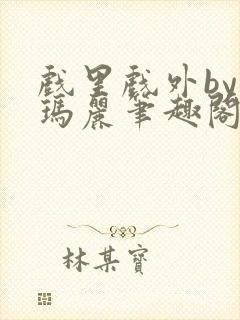 戲里戲外by
瑪麗筆趣閣
林某寶